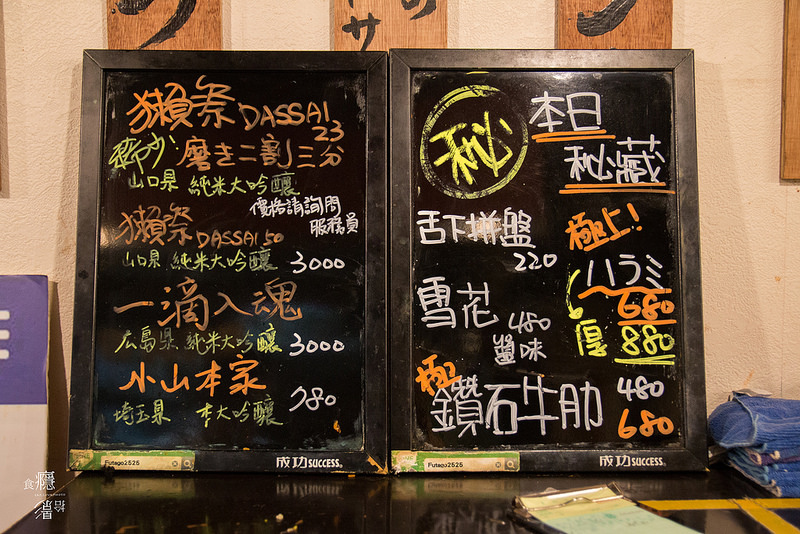 獺祭 DASSAI 23
稀少! 磨き二割三分
山口県 純米大吟釀
價格請詢問
服務員
獺祭 DASSAI 50
山口県 純米大吟釀 3000
一滴入魂
広島県 純米大吟釀 3000
小山本家
埼玉県 本大吟釀 780
Futago2525
成功 SUCCESS
秘 本日
秘藏
舌下拼盤
220
極上!
ハラミ
680
厚 880
雪花 480
鹽味
極
鑽石牛肋 480
680
Futago2525
成功 SUCCESS
食癮
拾